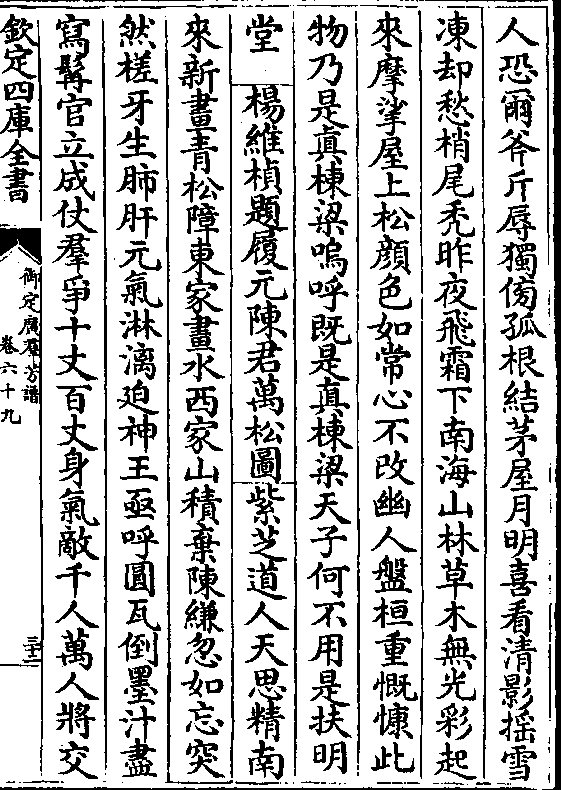 人恐爾斧斤辱獨傍孤根結茅屋月明喜看清影揺雪
凍却愁梢尾禿昨夜飛霜下南海山林草木無光彩起
來摩挲屋上松顔色如常心不改幽人盤桓重慨慷此
物乃是真棟梁嗚呼既是真棟梁天子何不用是扶明
堂　楊維楨題履元陳君萬松圖紫芝道人天思精南
來新畫青松障東家畫水西家山積棄陳縑忽如忘突
然槎牙生肺肝元氣淋漓迫神王亟呼圓瓦倒墨汁盡
寫髯官立成仗羣爭十丈百丈身氣敵千人萬人將交
欽定四庫全書
御定廣羣芳譜
卷六十九
三十二